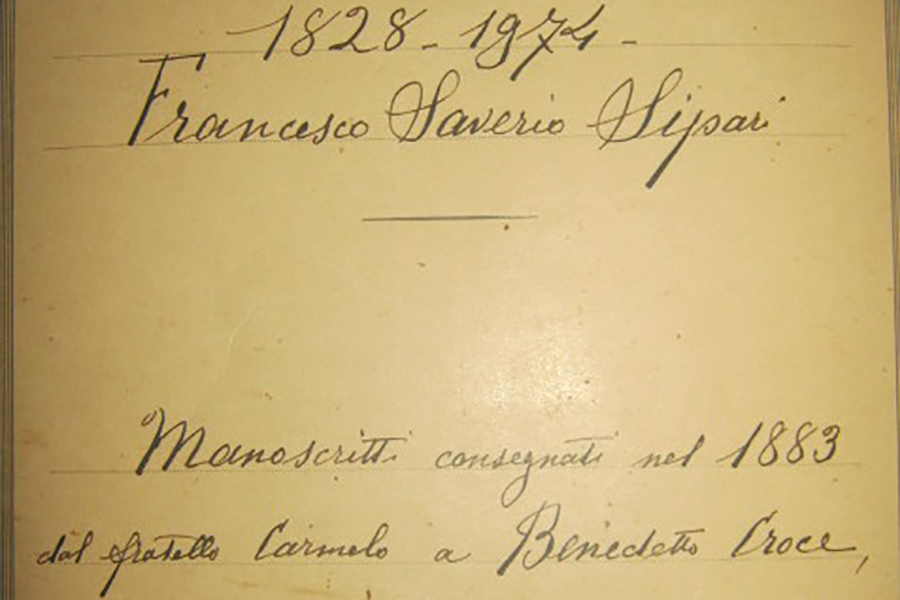 1828 - 1974 -
Francesco Saverio Sipari
Manoscritti consegnati nel 1883
dal fratello Carmelo a Benedetto Croce,